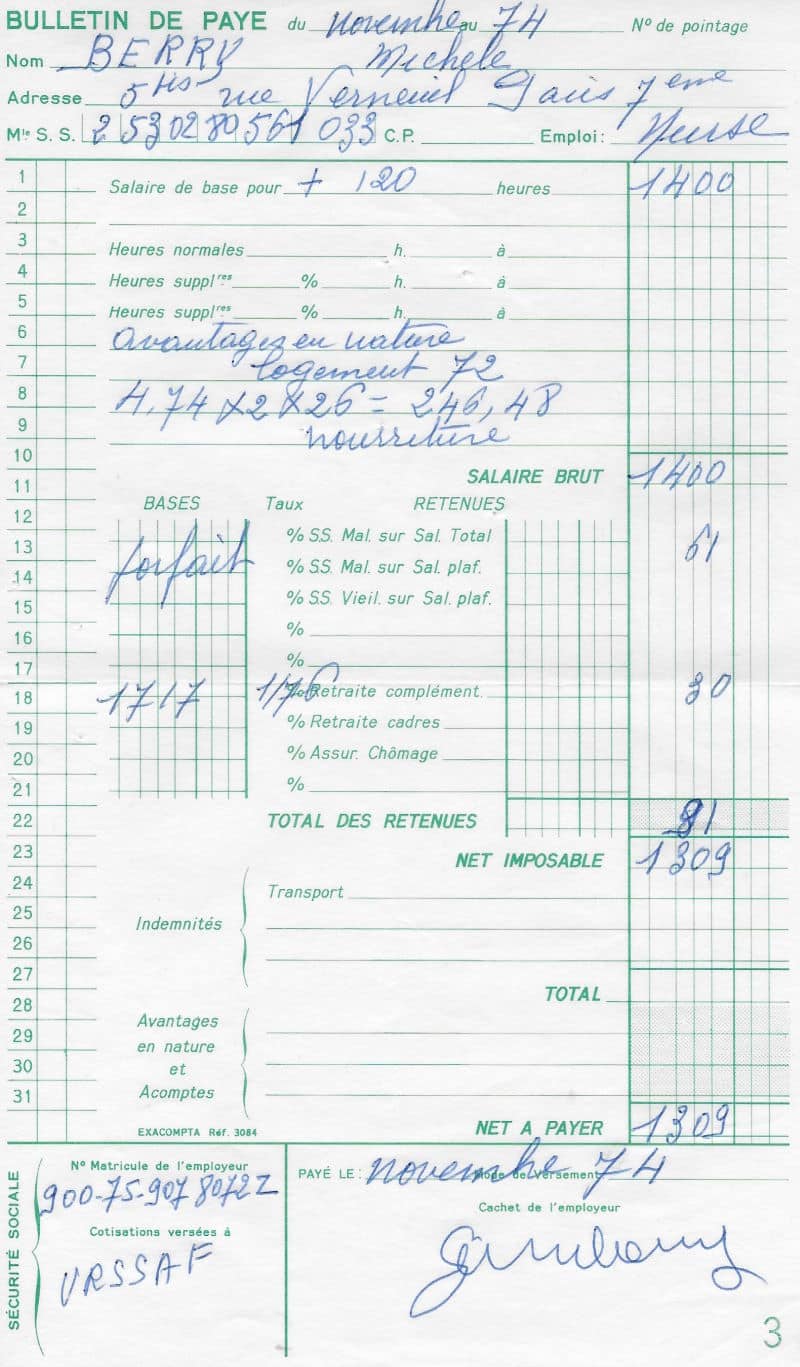 BULLETIN DE PAYE du novembre au 74 N° de pointage
Nom BERRY Michele
Adresse 5 bis rue Verneuil Paris 7 eme
Mle S. S. 2 530280561 033 C.P. Emploi : Nurse
1 Salaire de base pour + 120 heures 1400
2
3 Heures normales h. à
4 Heures supplres % h. à
5 Heures supplres % h. à
6 avantages en nature
7 logement 72
8 4,74 x 2 x 26 = 246,48
9 nourriture
10
11 SALAIRE BRUT 1400
12 BASES Taux RETENUES
13 % S.S. Mal. sur Sal. Total 61
14 forfait % S.S. Mal. sur Sal. plaf.
15 % S.S. Vieil. sur Sal. plaf.
16 %
17 %
18 1717 1/76 % Retraite complément. 30
19 % Retraite cadres
20 % Assur. Chômage
21 %
22 TOTAL DES RETENUES 91
23 NET IMPOSABLE 1309
24 Transport
25 Indemnités
26
27
28 TOTAL
29 Avantages
30 en nature
et
31 Acomptes
EXACOMPTA Réf. 3084 NET A PAYER 1309
SÉCURITÉ SOCIALE
N° Matricule de l'employeur
900-75-907 8072Z
Cotisations versées à
URSSAF
PAYÉ LE : novembre 74 Mode de versement
Cachet de l'employeur
3